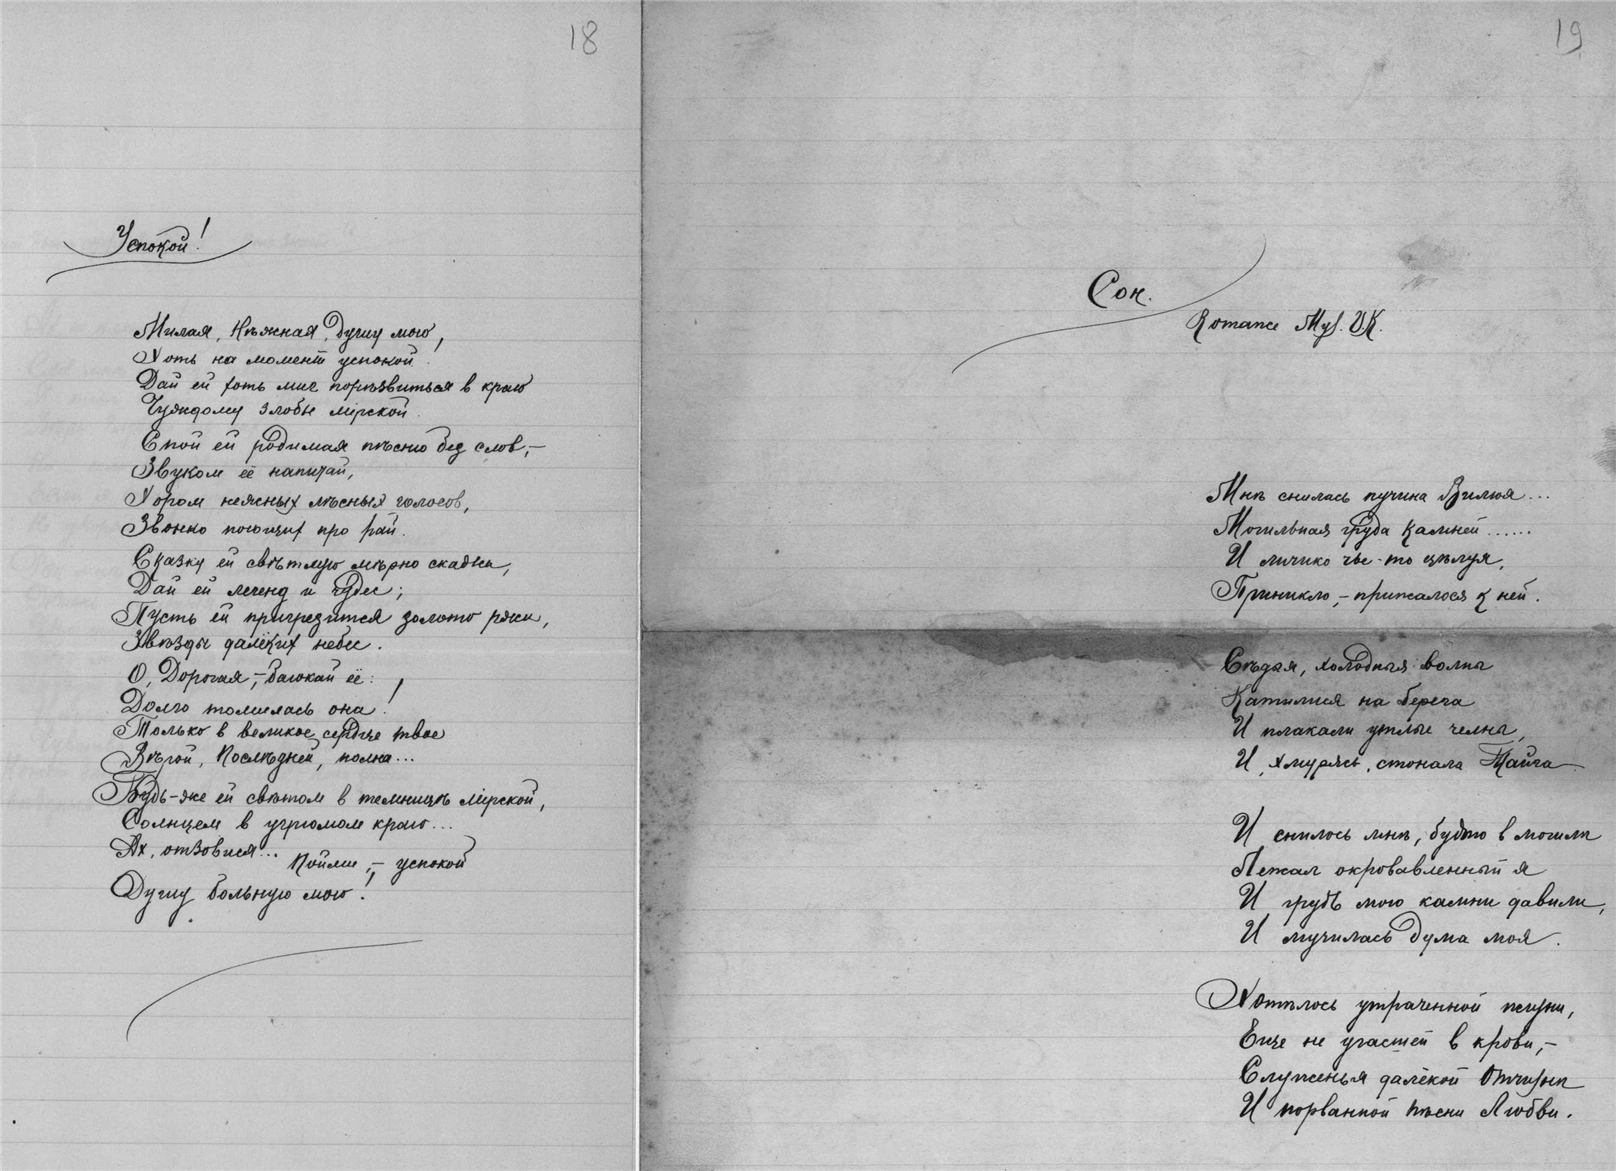 18
Успокой!
Милая, Нѣжная, Душу мою,
Хоть на моментъ успокой.
Дай ей хоть миг порѣзвиться в краю
Чуждому злобы мірской.
Спой ей родимая пѣсню без слов,–
Звуком её напитай,
Хором неясных лѣсных голосов,
Звонко
про Рай.
Сказку ей свѣтлую мѣрно скажи,
Дай ей легенд и чудес;
Пусть ей пригрезится золото ржи,
Звѣзды далёких небес.
О, Дорогая,– баюкай её:
Долго томилась она!
Только в великое сердце твое
Вѣрой, Послѣдней, полна...
Будь-же ей свѣтом в темницѣ мірской,
Солнцем в угрюмом краю...
Ах, отзовися... Пойми,– успокой
Душу больную мою!
19
Сон.
Romance Mys. VK.
Мнѣ снилась пучина Вилюя...
Могильная груда камней......
И личико чье-то цѣлуя,
Приникло,– прижалося к ней.
Сѣдыя, холодныя волны
Катилися на берега
И плакали утлые челны,
И, хмурясь, стонала Тайга
И снилось мнѣ, будто в могилѣ
Лежал окровавленный я
И грудь мою камни давили,
И мучилась дума моя.
Хотѣлось утраченной жизни,
Еще не угасшей в крови,–
Служенья далёкой Отчизнѣ
И порванной пѣсни Любви.